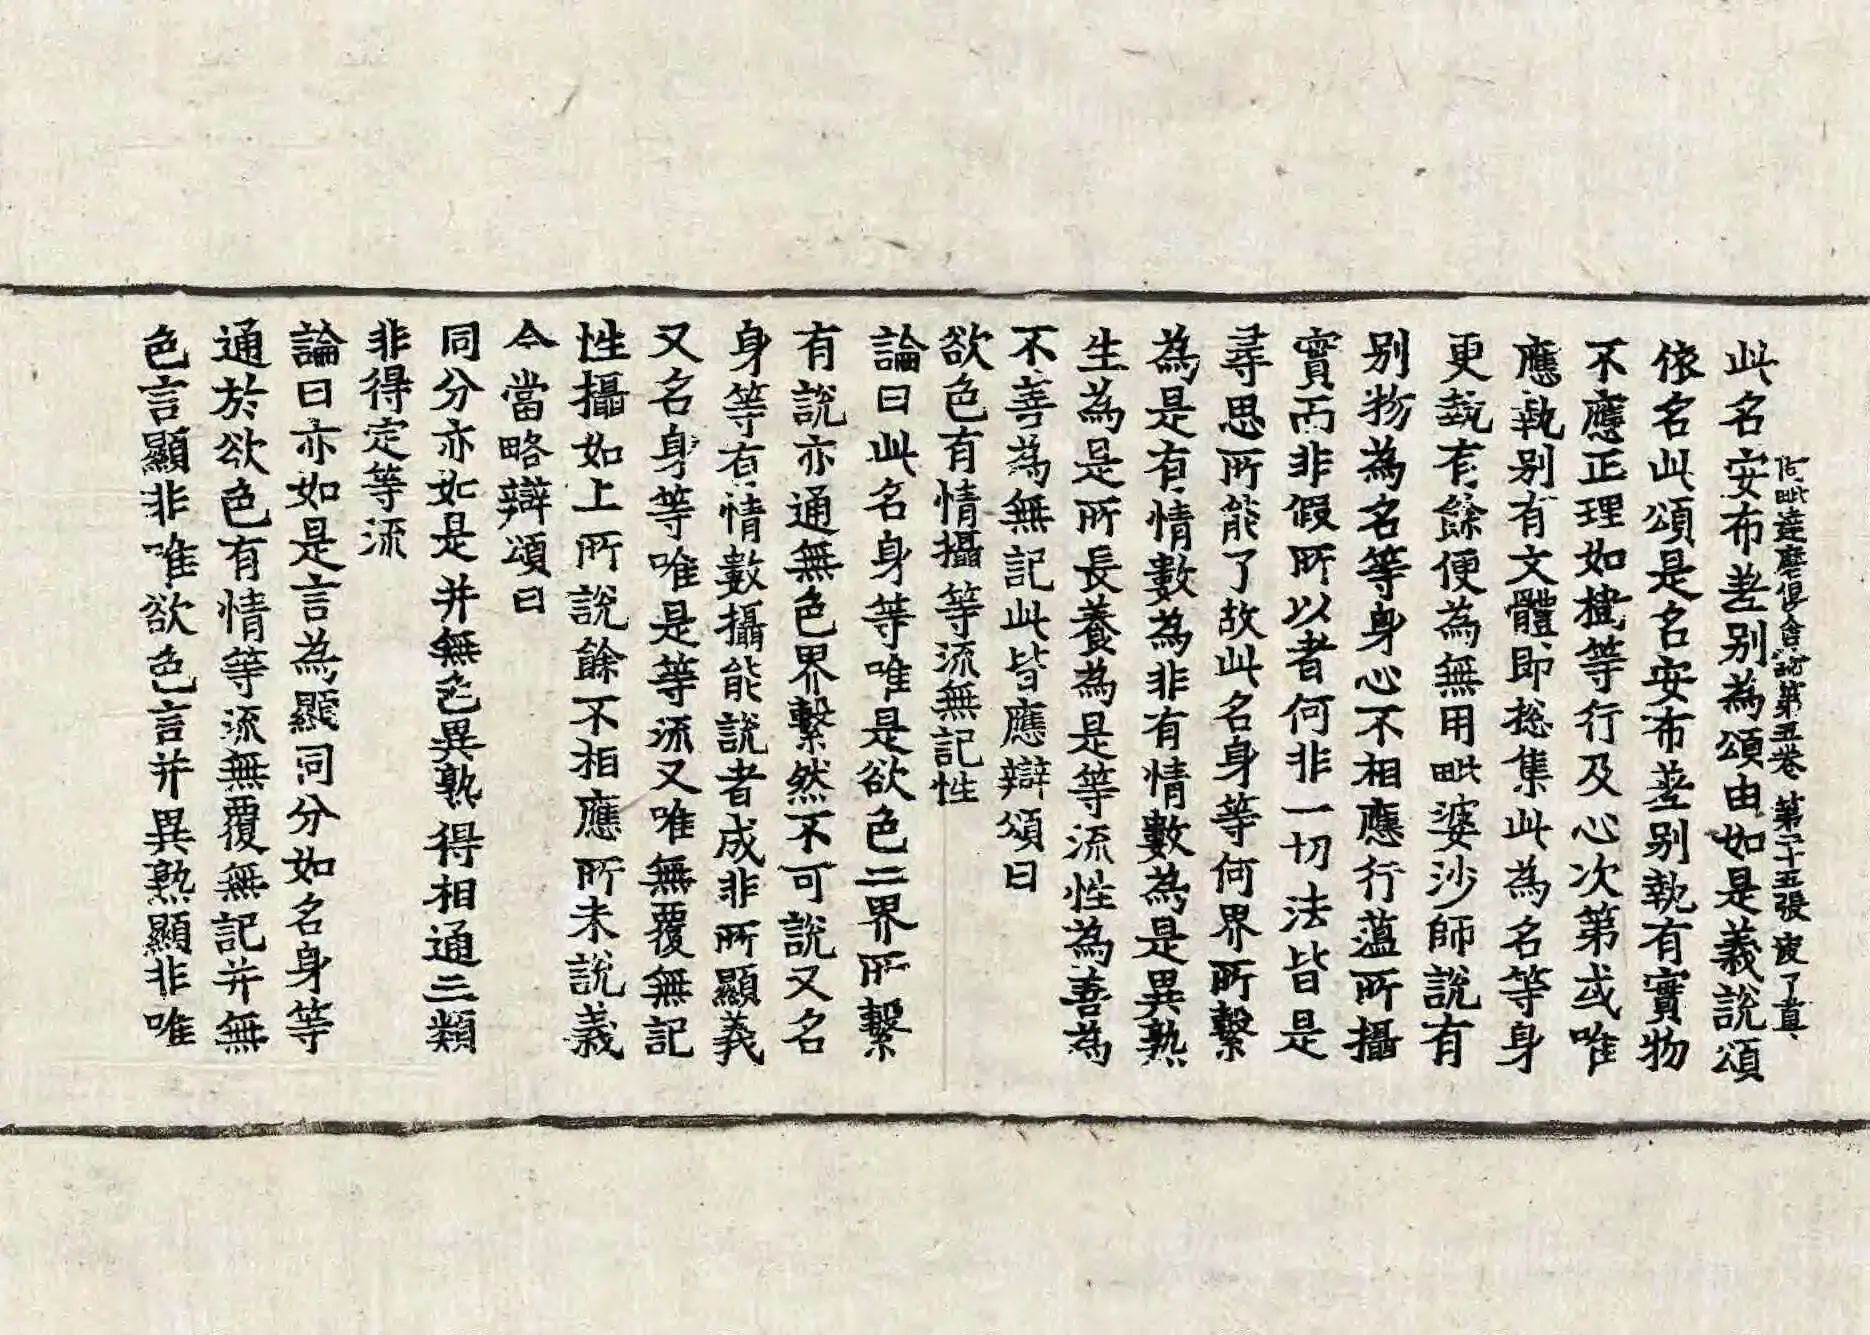 阿毗達磨俱舍論第五卷 第二十五張 虔了直
此名安布差别為頌由如是義說頌
依名此頌是名安布差别執有實物
不應正理如樹等行及心次第或唯
應執别有文體即揔集此為名等身
更執有餘便為無用毗婆沙師說有
别物為名等身心不相應行蕴所攝
實而非假所以者何非一切法皆是
尋思所能了故此名身等何界所繫
為是有情數為非有情數為是異熟
生為是所長養為是等流性為善為
不善為無記此皆應辯頌曰
欲色有情攝等流無記性
論曰此名身等唯是欲色二界所繫
有說亦通無色界繫然不可說又名
身等有情數攝能說者成非所顯義
又名身等唯是等流又唯無覆無記
性攝如上所說餘不相應所未說義
今當略辯頌曰
同分亦如是并無色異熟得相通三類
非得定等流
論曰亦如是言為顯同分如名身等
通於欲色有情等流無覆無記并無
色言顯非唯欲色言并異熟顯非唯